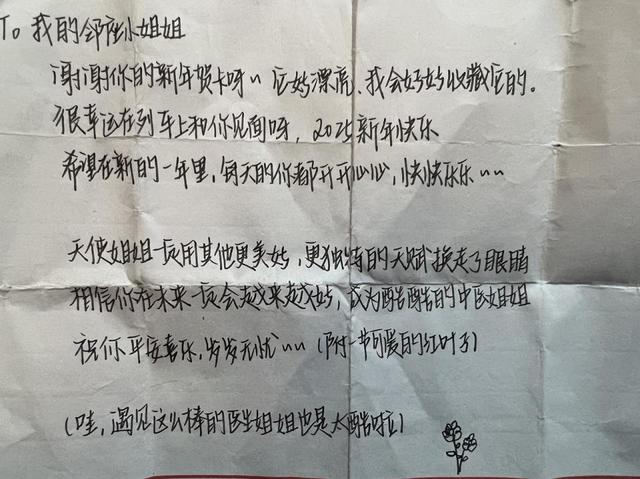 To 我的邻座小姐姐
谢谢你的新年贺卡呀~ 它好漂亮、我会好好收藏它的。
很幸运在列车上和你见面呀，2025新年快乐
希望在新的一年里，每天的你都开开心心，快快乐乐~~
天使姐姐一定用其他更美好，更独特的天赋换走了眼睛
相信你在未来一定会越来越好，成为酷酷的中医姐姐
祝你平安喜乐，岁岁无忧~~（附一片可爱的红叶子）
（哇，遇见这么棒的医生姐姐也是太酷啦）